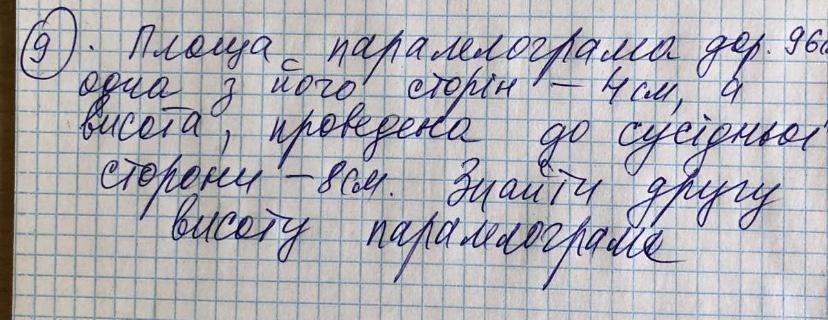 9. Площа паралелограма дор. 96
одна з його сторін - 4см, а
висота, проведена до сусідньої
сторони - 8см. Знайти другу
висоту паралелограма